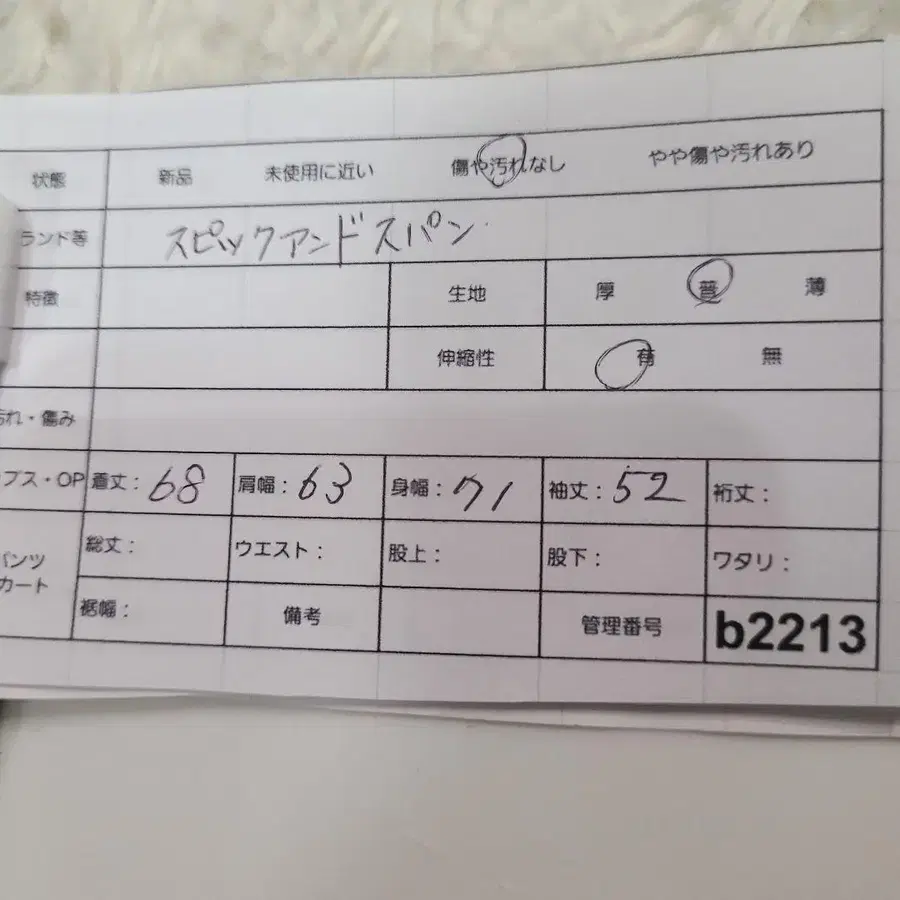 状態 新品 未使用に近い 傷や汚れなし やや傷や汚れあり
ランド等 スピックアンドスパン
特徴 生地 厚 普 薄
伸縮性 有 無
汚れ・傷み
プス・OP 着丈：68 肩幅：63 身幅：71 袖丈：52 裄丈：
パンツ 総丈： ウエスト： 股上： 股下： ワタリ：
カート
裾幅： 備考 管理番号 b2213